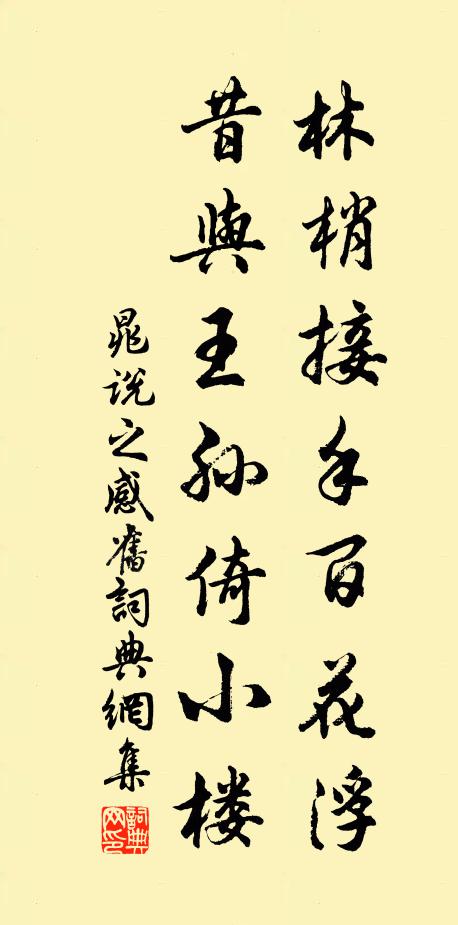 林梢接手百花浮
昔與王孙倚小楼
晁說之感舊詞典網集
詞典网印